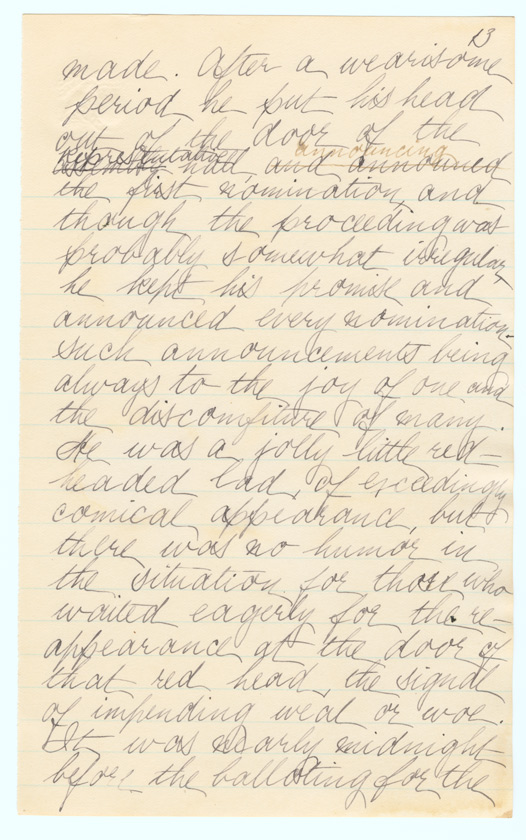 13
made. After a wearisome
period he put his head
out of the door of the
Representative
hall announcing
the first nomination, and
though the proceeding was
probably somewhat irregular
he kept his promise and
announced every nomination,
such announcements being
always to the joy of one and
the discomfiture of many.
He was a jolly little red-
headed lad, of exceedingly
comical appearance, but
there was no humor in
the situation for those who
waited eagerly for the re-
appearance at the door of
that red head, the signal
of impending weal or woe.
It was nearly midnight
before the balloting for the